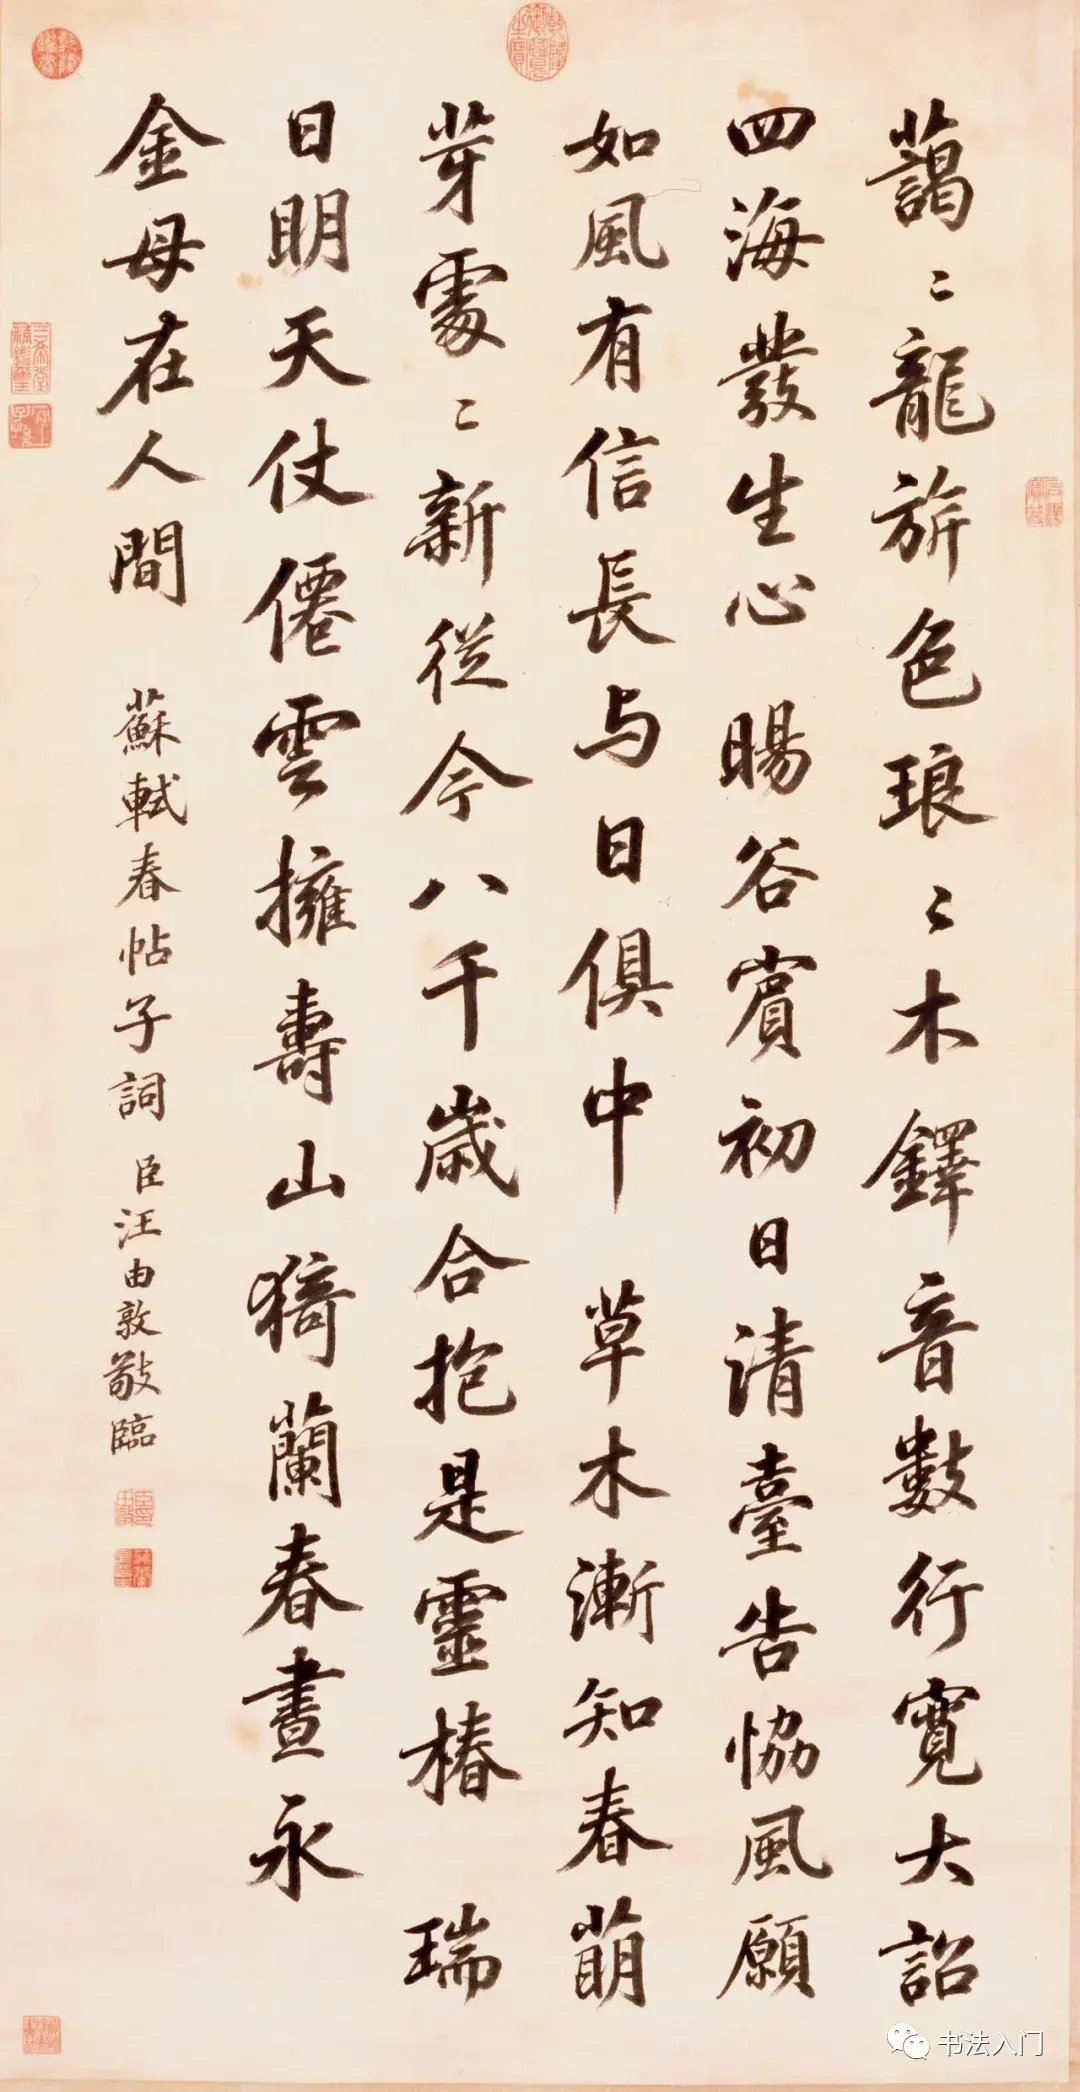 藹〻龍旂色琅〻木鐸音數行寬大詔
四海發生心 暘谷賓初日清臺告協風願
如風有信長与日俱中 草木漸知春萌
芽處〻新從今八千歲合抱是靈椿 瑞
日明天仗僊雲擁壽山猗蘭春晝永
金母在人間 蘇軾春帖子詞 臣汪由敦敬臨
书法入门